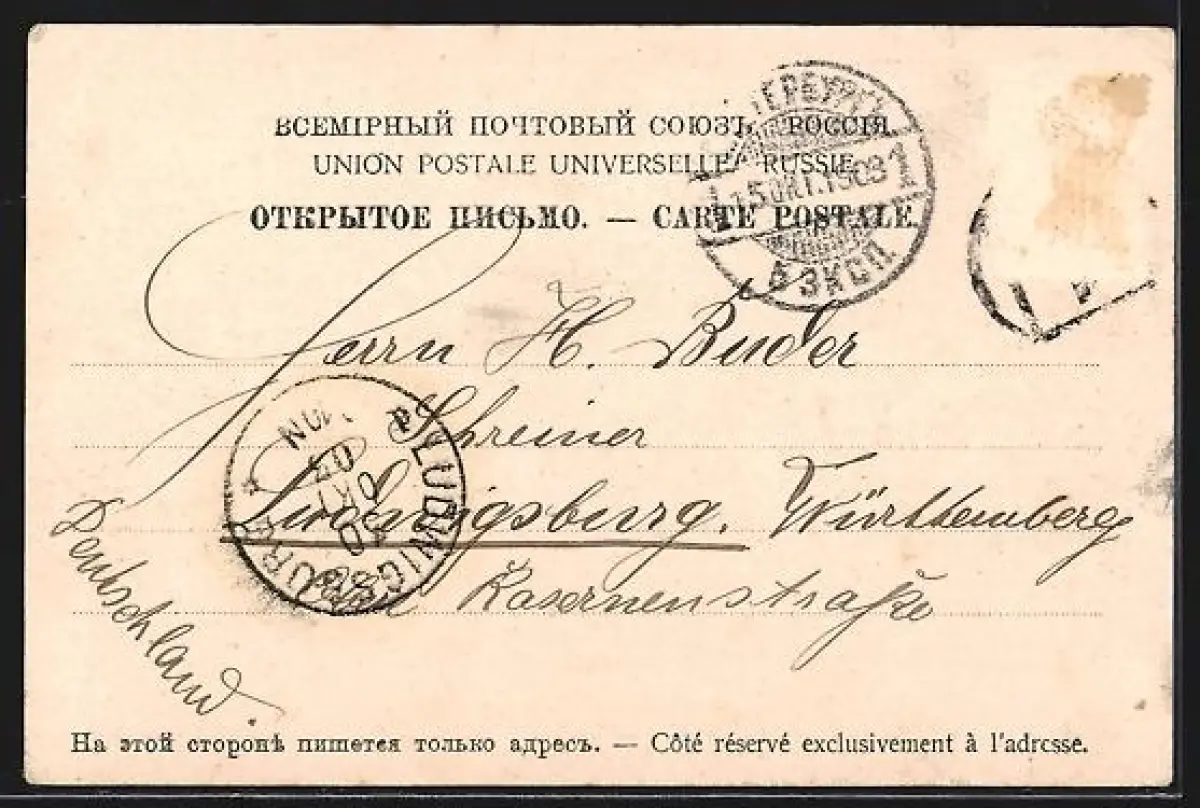 ВСЕМІРНЫЙ ПОЧТОВЫЙ СОЮЗЪ. РОССІЯ
UNION POSTALE UNIVERSELLE. RUSSIE
ОТКРЫТОЕ ПИСЬМО. — CARTE POSTALE.
1 15 ОКТ. 1903 1
5 ЭКСП.
Herrn H. Buder
Schreiner
Ludwigsburg. Württemberg
Kasernenstraße
Deutschland.
LUDWIGSBURG
OKT
На этой сторонѣ пишется только адресъ. — Côté réservé exclusivement à l'adresse.